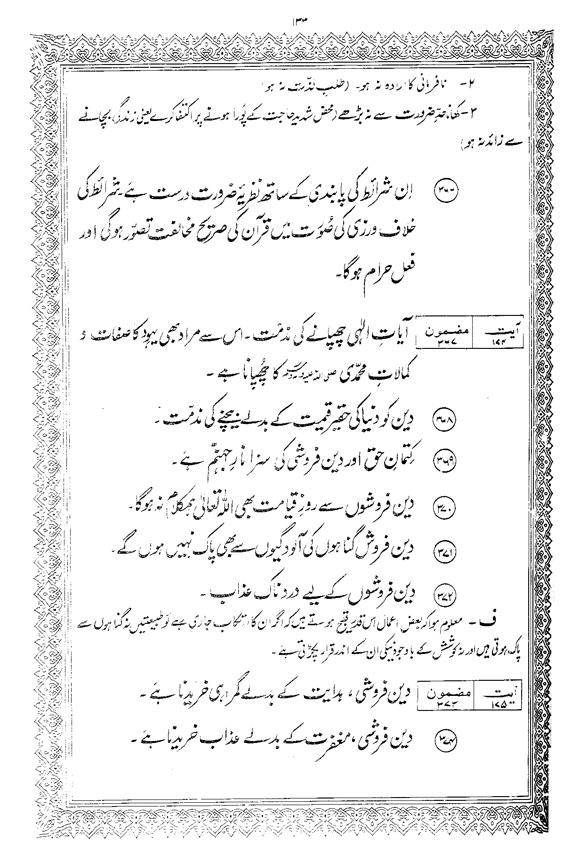 ۱۳۳
۲- نافرمانی کا ارادہ نہ ہو۔ (طلب لذّت نہ ہو)
۳- کھانا حدِّ ضرورت سے نہ بڑھے (محض شدید حاجت کے پُورا ہونے پر اکتفا کرے یعنی زندگی بچانے
سے زائد نہ ہو)
۳۶۶ اِن شرائط کی پابندی کے ساتھ نظریۂ ضرورت درست ہے۔ شرائط کی
خلاف ورزی کی صُوت میں قرآن کی صریح مخالفت تصوّر ہوگی اور
فعل حرام ہوگا۔
آیت ۱۷۴ مضمون ۳۶۷ آیاتِ الٰہی چھپانے کی مذمّت۔ اس سے مراد بھی یہود کا صفات و
کمالاتِ محمّدی صلی اللہ علیہ وسلم کا چُھپانا ہے۔
۳۶۸ دین کو دنیا کی حقیر قیمت کے بدلے بیچنے کی مذمّت۔
۳۶۹ کتمانِ حق اور دین فروشی کی سزا نارِ جہنّم ہے۔
۳۷۰ دین فروشوں سے روزِ قیامت بھی اللہ تعالیٰ ہمکلام نہ ہوگا۔
۳۷۱ دین فروش گناہوں کی آلودگیوں سے بھی پاک نہیں ہوں گے۔
۳۷۲ دین فروشوں کے لیے دردناک عذاب۔
ف۔ معلوم ہوا کہ بعض اعمال اس قدر قبیح ہوتے ہیں کہ اگر ان کا ارتکاب جاری رہے تو طبیعتیں نہ گناہوں سے
پاک ہوتی ہیں اور نہ کوشش کے باوجود نیکی ان کے اندر قرار پکڑتی ہے۔
آیت ۱۷۵ مضمون ۳۷۳ دین فروشی، ہدایت کے بدلے گمراہی خریدنا ہے۔
۳۷۴ دین فروشی، مغفرت کے بدلے عذاب خریدنا ہے۔